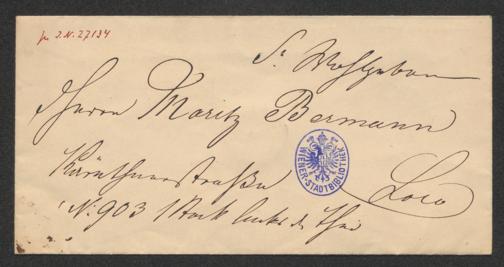 zu I.N. 27134
Sr Wohlgeboren
Herrn Moritz Bermann
Kärnthnerstraße
WIENER-STADTBIBLIOTHEK
Loco
No. 903 1 Stock links d. Thür